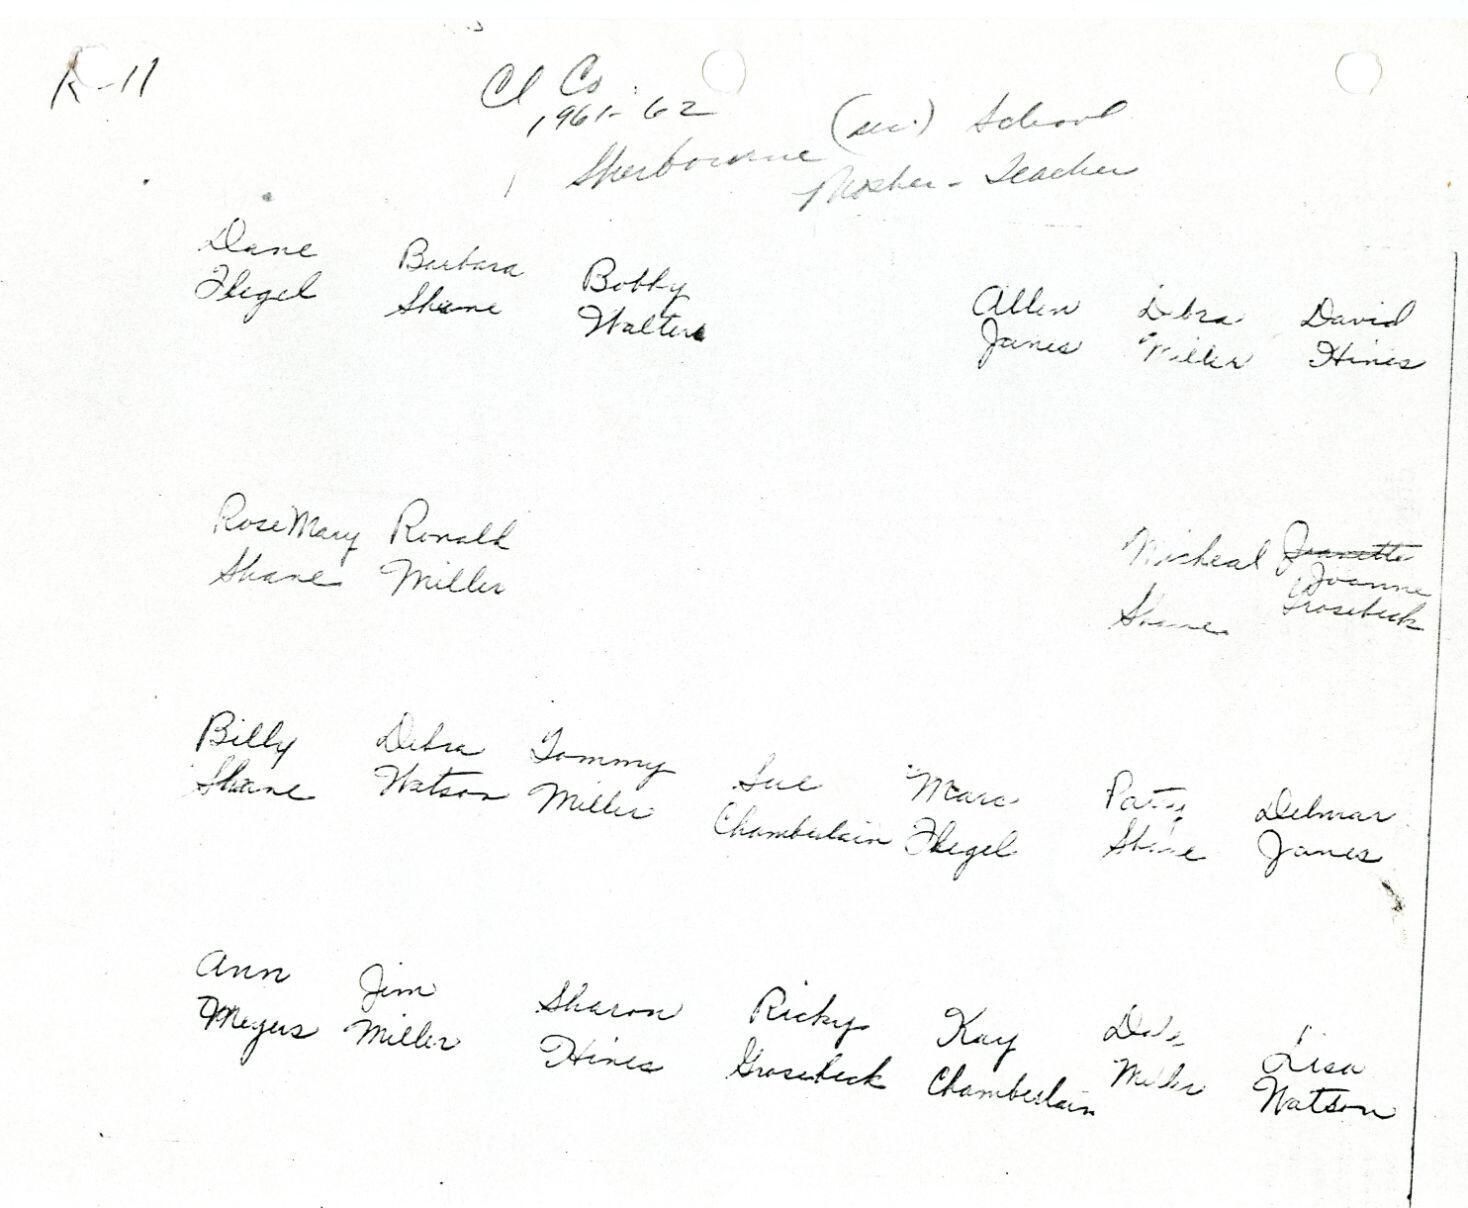 R-11
Cl Co
1961-62
(sec.) School
Sherbourne
Mosher - Teacher
Dane Barbara Bobby Allen Debra David
Flegel Shane Walters Janes Miller Hines
RoseMary Ronald Micheal Jeanette
Joanne
Shane Miller Shane Grosebeck
Billy Debra Tommy Sue Marc Patty Delmar
Shane Watson Miller Chamberlain Flegel Shane Janes
Ann Jim Sharon Ricky Kay Lisa
Meyers Miller Hines Grosebeck Chamberlain Miller Watson